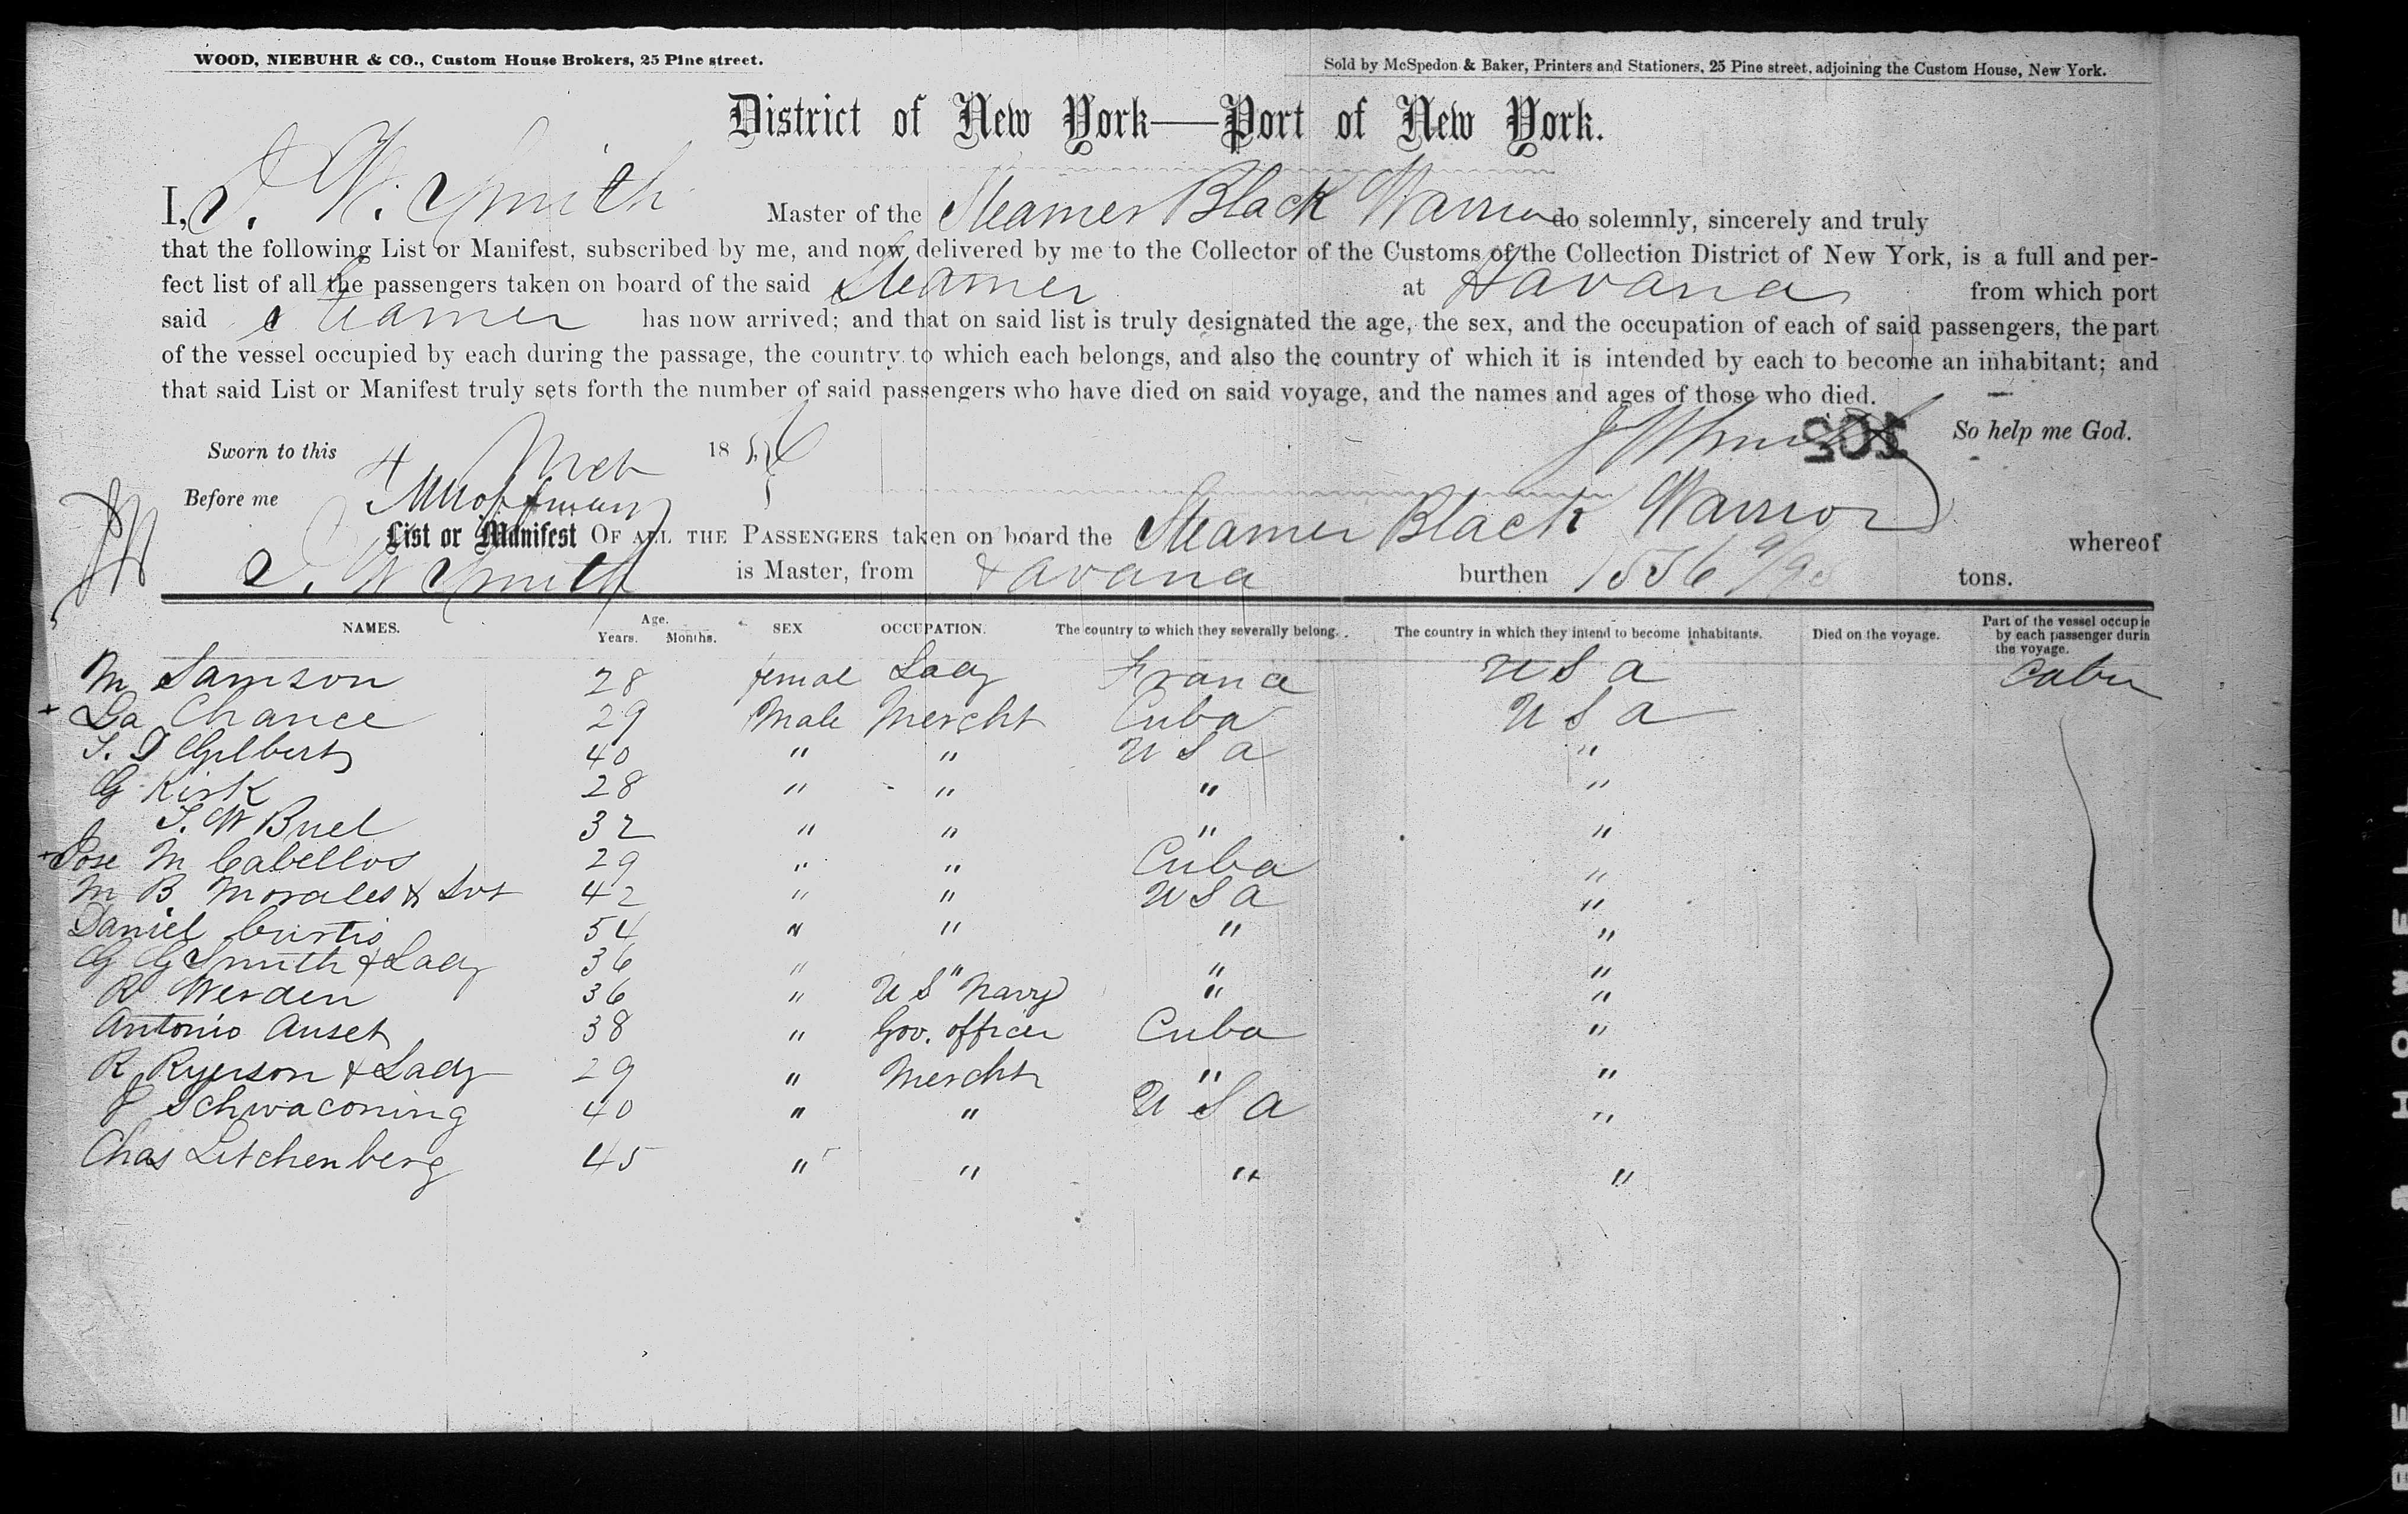 WOOD, NIEBUHR & CO., Custom House Brokers, 25 Pine street.
Sold by McSpedon & Baker, Printers and Stationers, 25 Pine street, adjoining the Custom House, New York.
District of New York—Port of New York.
I, J. W. Smith Master of the Steamer Black Warrior do solemnly, sincerely and truly
that the following List or Manifest, subscribed by me, and now delivered by me to the Collector of the Customs of the Collection District of New York, is a full and per-
fect list of all the passengers taken on board of the said Steamer at Havana from which port
said Steamer has now arrived; and that on said list is truly designated the age, the sex, and the occupation of each of said passengers, the part
of the vessel occupied by each during the passage, the country to which each belongs, and also the country of which it is intended by each to become an inhabitant; and
that said List or Manifest truly sets forth the number of said passengers who have died on said voyage, and the names and ages of those who died.
Sworn to this 4 Mch 1856 J W Smith 105 So help me God.
Before me
List or Manifest OF ALL THE PASSENGERS taken on board the Steamer Black Warrior whereof
J. W Smith is Master, from Havana burthen 1556 9/95 tons.
NAMES. Age. Years. Months. SEX OCCUPATION. The country to which they severally belong. The country in which they intend to become inhabitants. Died on the voyage. Part of the vessel occupie
by each passenger durin
the voyage.
M Samson 28 femal Lady France U S a Cabin
+ La Chance 29 Male Mercht Cuba U S a
S. D Gilbert 40 " " U S a "
G Kirk 28 " " " "
S. W Buel 32 " " " "
+ Jose M Cabellos 29 " " Cuba "
M B Morales & Svt 42 " " U S a "
Daniel Curtis 54 " " " "
G G Smith & Lady 36 " " " "
R Werden 36 " U S Navy " "
Antonio Auset 38 " Gov. officer Cuba "
R Ryerson & Lady 29 " Mercht " "
J Schwaconing 40 " " U S a "
Chas Litchenberg 45 " " " "